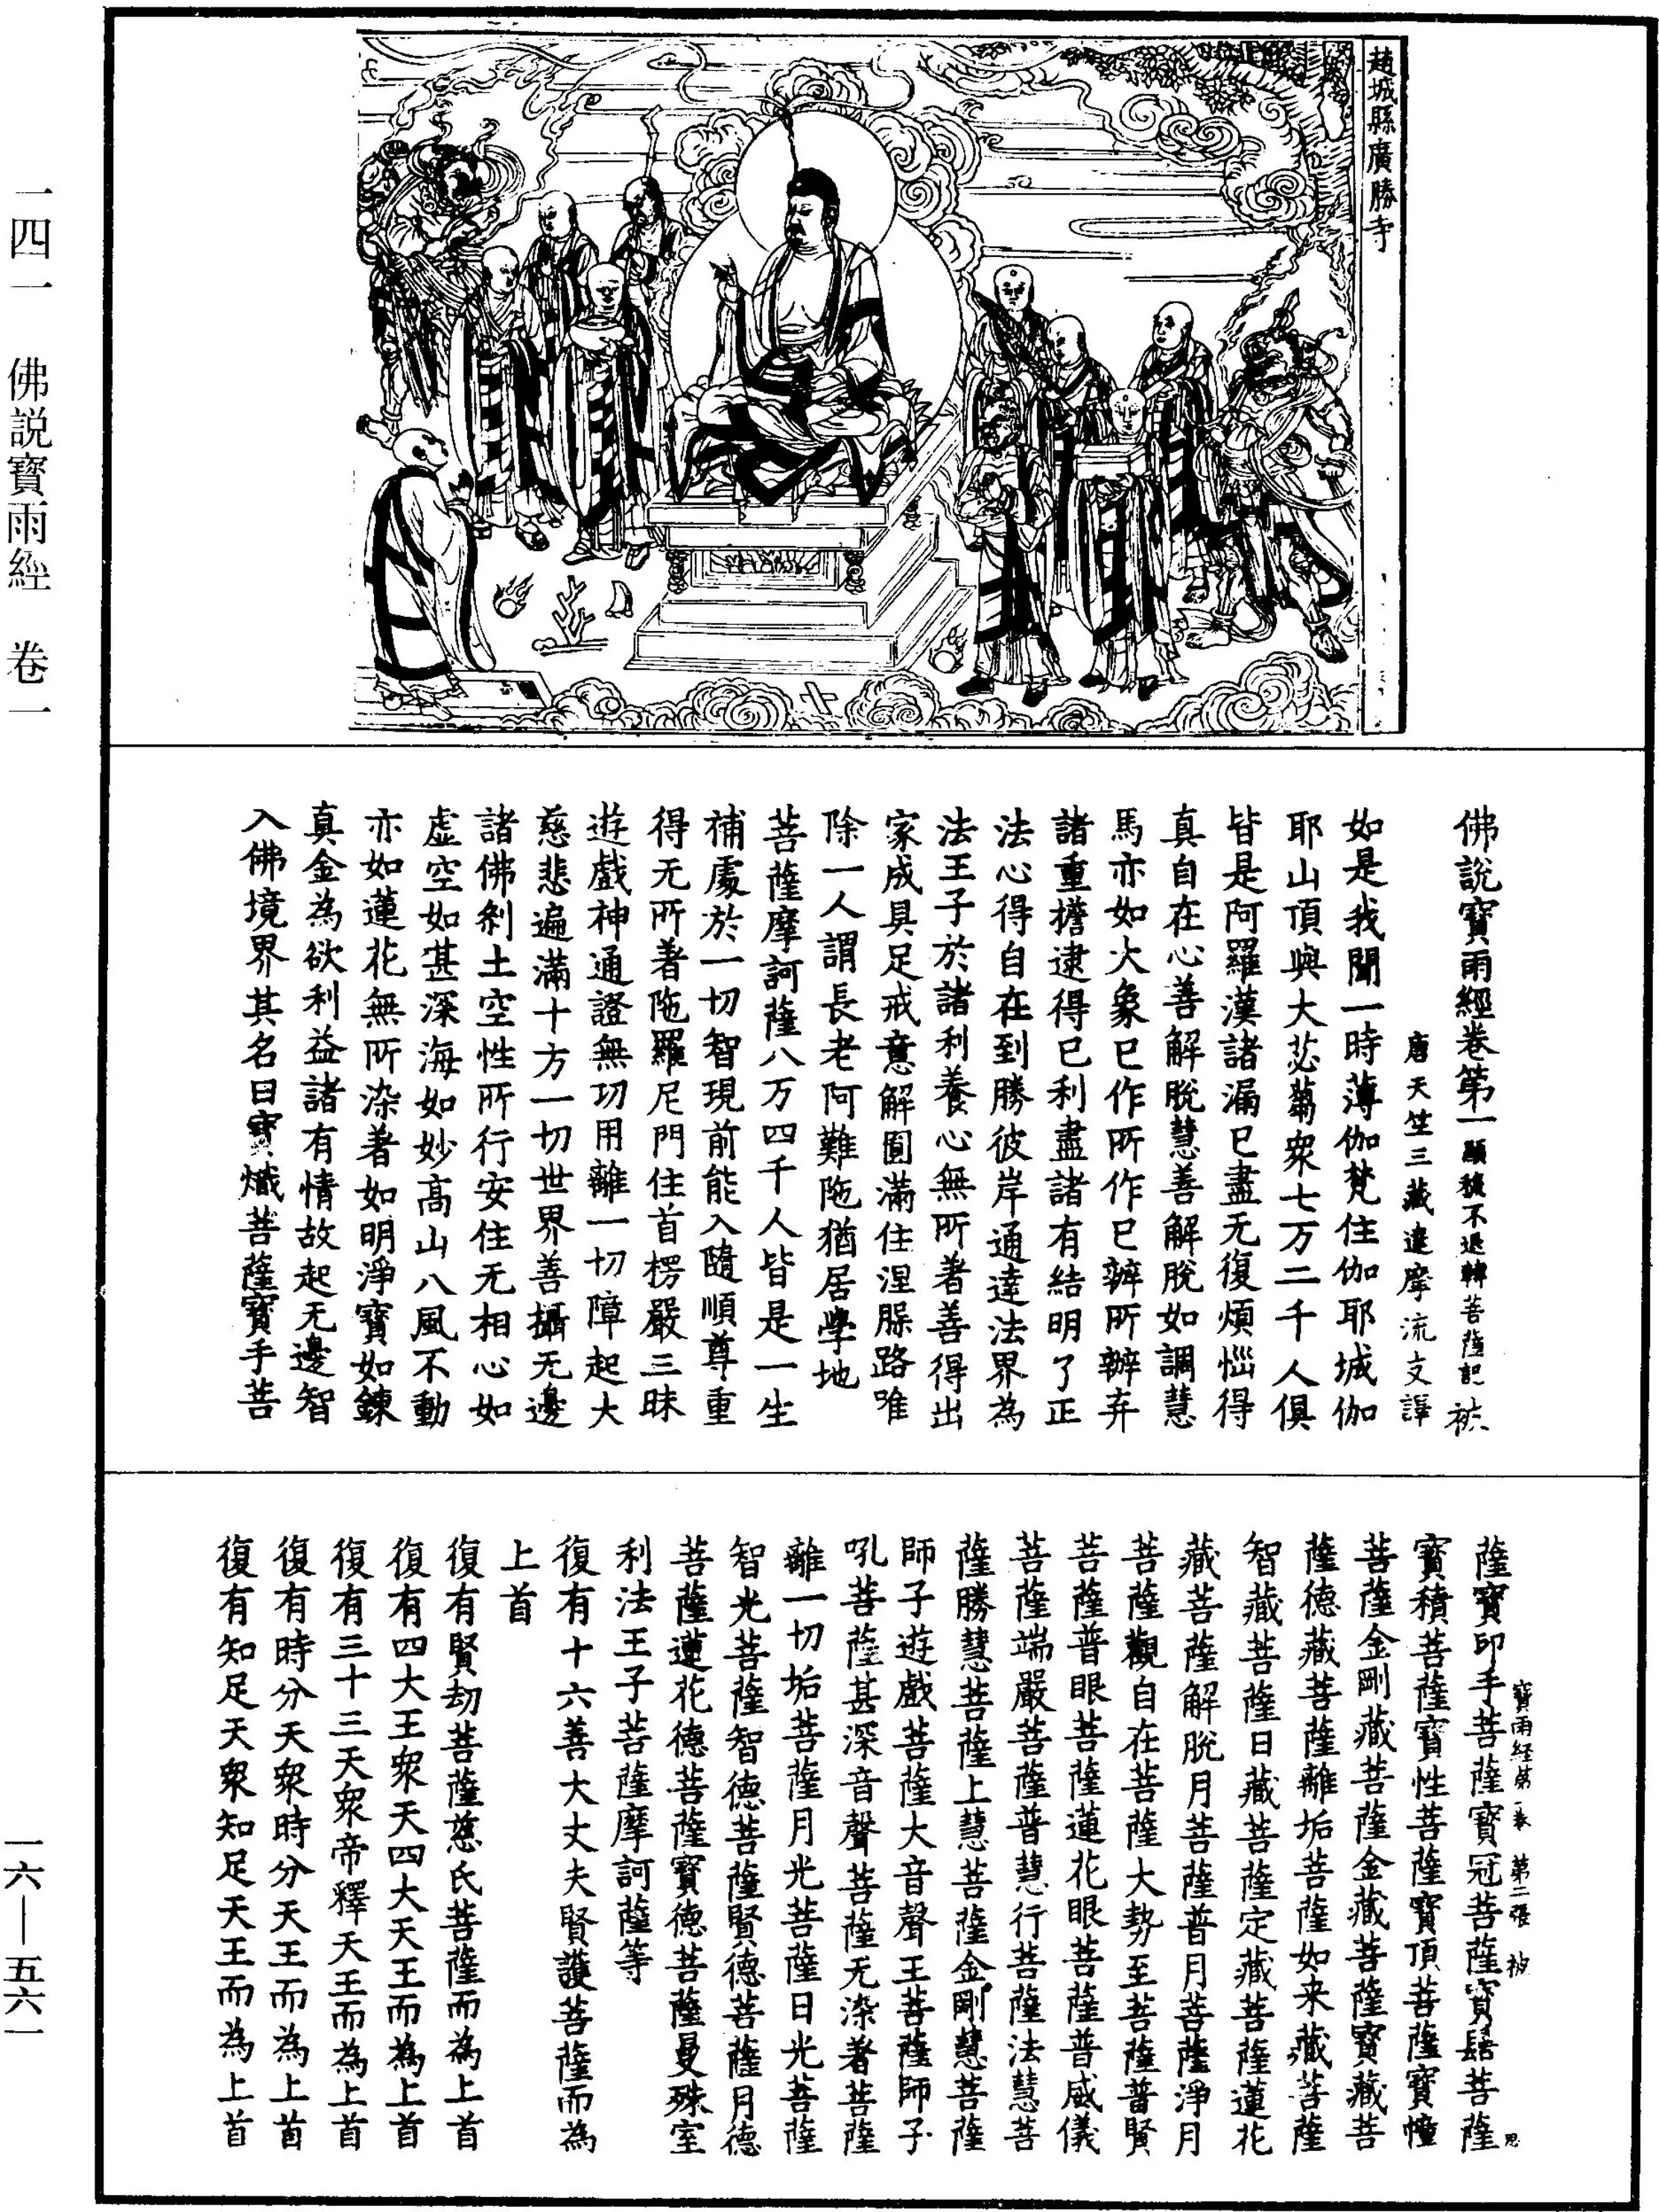 趙城縣廣勝寺
佛說寶雨經卷第一 顯積不退轉菩薩記 被
唐天竺三藏達摩流支譯
如是我聞一時薄伽梵住伽耶城伽
耶山頂與大苾蒭衆七万二千人俱
皆是阿羅漢諸漏已盡无復煩惱得
真自在心善解脫慧善解脫如調慧
馬亦如大象已作所作已辦所辦弃
諸重擔逮得已利盡諸有結明了正
法心得自在到勝彼岸通達法界為
法王子於諸利養心無所著善得出
家成具足戒意解圓滿住涅槃路唯
除一人謂長老阿難陁猶居學地
菩薩摩訶薩八万四千人皆是一生
補處於一切智現前能入隨順尊重
得无所著陁羅尼門住首楞嚴三昧
遊戲神通證無功用離一切障起大
慈悲遍滿十方一切世界善攝无邊
諸佛剎土空性所行安住无相心如
虛空如甚深海如妙高山八風不動
亦如蓮花無所染著如明淨寶如鍊
真金為欲利益諸有情故起无邊智
入佛境界其名曰寶熾菩薩寶手菩
寶雨經第一卷 第二張 被
薩寶印手菩薩寶冠菩薩寶髻菩薩
寶積菩薩寶性菩薩寶頂菩薩寶幢
菩薩金剛藏菩薩金藏菩薩寶藏菩
薩德藏菩薩離垢菩薩如来藏菩薩
智藏菩薩日藏菩薩定藏菩薩蓮花
藏菩薩解脫月菩薩普月菩薩淨月
菩薩觀自在菩薩大勢至菩薩普賢
菩薩普眼菩薩蓮花眼菩薩普威儀
菩薩端嚴菩薩普慧行菩薩法慧菩
薩勝慧菩薩上慧菩薩金剛慧菩薩
師子遊戲菩薩大音聲王菩薩師子
吼菩薩甚深音聲菩薩无染著菩薩
離一切垢菩薩月光菩薩日光菩薩
智光菩薩智德菩薩賢德菩薩月德
菩薩蓮花德菩薩寶德菩薩曼殊室
利法王子菩薩摩訶薩等
復有十六善大丈夫賢護菩薩而為
上首
復有賢劫菩薩慈氏菩薩而為上首
復有四大王衆天四大天王而為上首
復有三十三天衆帝釋天王而為上首
復有時分天衆時分天王而為上首
復有知足天衆知足天王而為上首
一四一 佛説寶雨經 卷一
一六—五六一